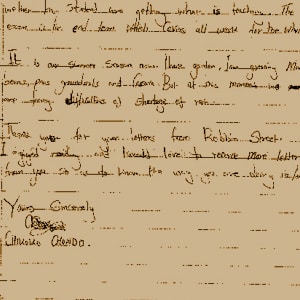 whether the Student are getting what is teaching. The
exam is the end term which takes all week for the whole
It is our Summer Season now. I have garden, I am growing
peas, groundnuts and But at this moment we
are facing difficulties of Shortage of rain.
Thank you for your letters from Robbin Street.
I enjoyed reading and I would love to receive More letters
from you So as to know the way you are doing
Yours Sincerely